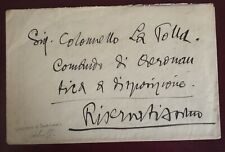 Sig. Colonnello La Folla
Comando di Aeronau
tica a disposizione.
Riservatissimo